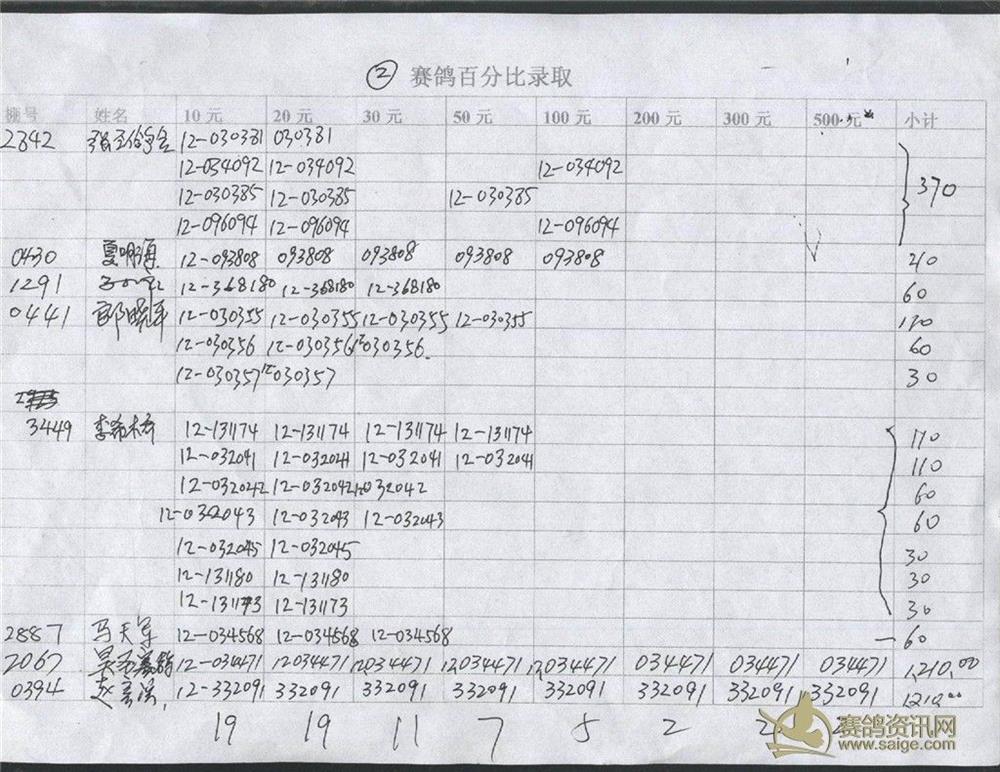 ② 赛鸽百分比录取
棚号 姓名 10元 20元 30元 50元 100元 200元 300元 500元 小计
2842 12-030381 030381
12-034092 12-034092 12-034092
12-030385 12-030385 12-030385 370
12-096094 12-096094 12-096094
0430 夏明 12-093808 093808 093808 093808 093808 210
1291 12-368180 12-368180 12-368180 60
0441 郭晓军 12-030355 12-030355 12-030355 12-030355 110
12-030356 12-030356 12-030356 60
12-030357 12-030357 30
3449 李希 12-131174 12-131174 12-131174 12-131174 110
12-032041 12-032041 12-032041 12-032041 110
12-032042 12-032042 12-032042 60
12-032043 12-032043 12-032043 60
12-032045 12-032045 30
12-131180 12-131180 30
12-131173 12-131173 30
2887 马天军 12-034568 12-034568 12-034568 60
2067 12-034471 12034471 12034471 12034471 12034471 034471 034471 034471 1,210.00
0394 赵 12-332091 332091 332091 332091 332091 332091 332091 332091 1210.00
19 19 11 7 5 2 2 2
赛鸽资讯网
www.saige.com